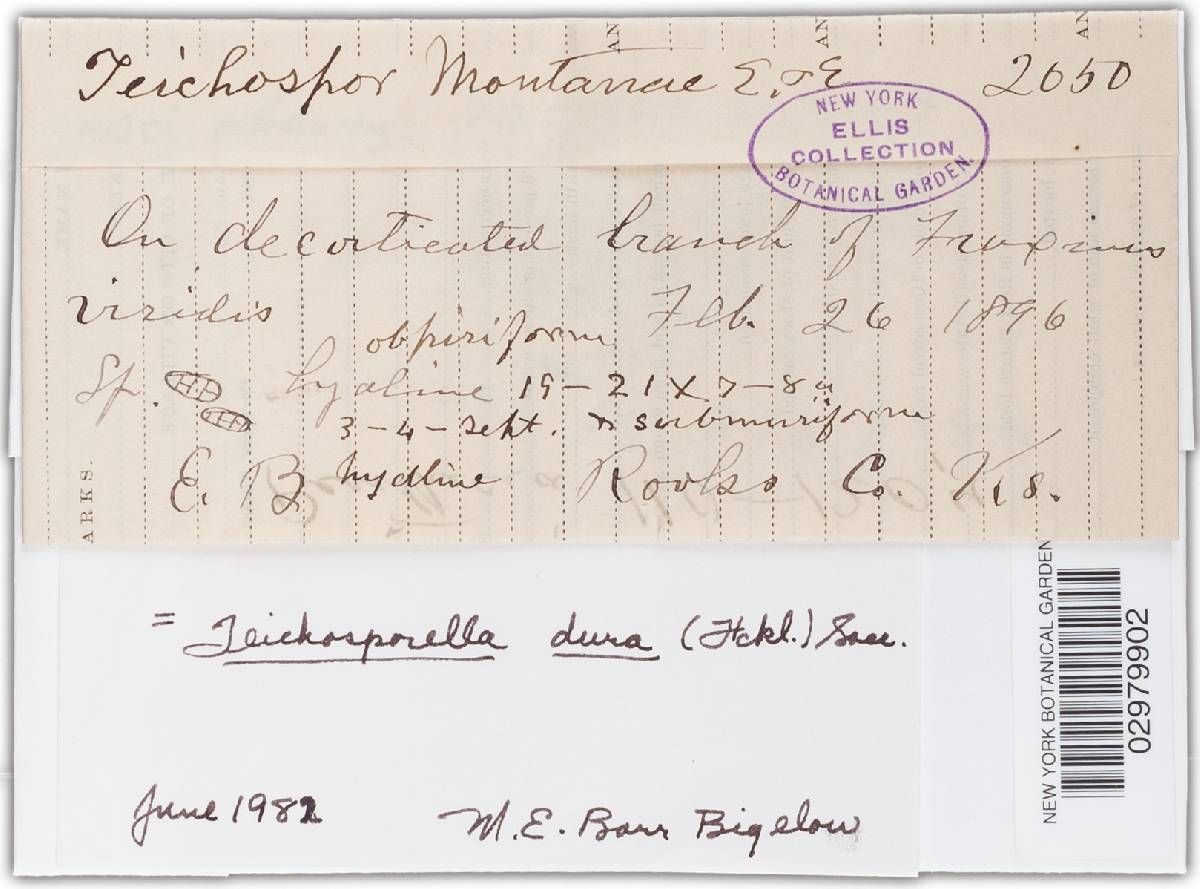 Teichospor Montanae E. & E 2050
NEW YORK
ELLIS
COLLECTION
BOTANICAL GARDEN.
On decorticated branch of Fraxinus
viridis Feb. 26 1896
obpiriform
Sp. hyaline 19-21 X 7-8 u
3-4-sept. & submuriform
hyaline
E. B. Rooks Co. Ks.
ARKS.
AN
AN
AN
= Teichosporella dura (Fckl.) Sacc.
June 1982 M.E. Barr Bigelow
NEW YORK BOTANICAL GARDEN
02979902